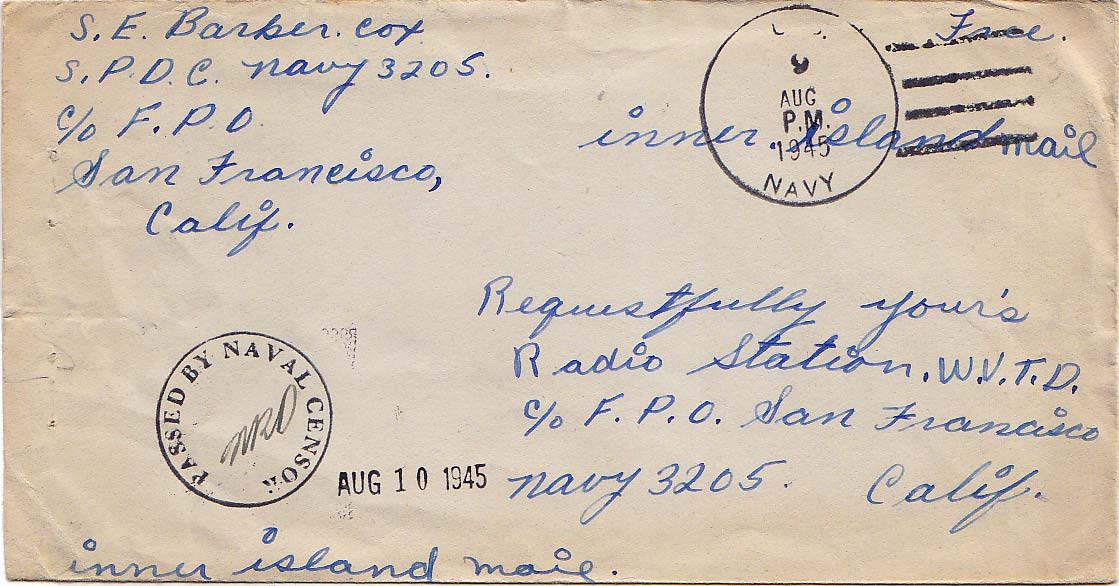 S. E. Barber. cox
S. P. D. C. navy 3205.
c/o F. P. O.
San Francisco,
Calif.
Free.
9
AUG
P.M.
1945
NAVY
inner. island mail
Requestfully your's
Radio Station. W.V.T.D.
c/o F. P. O. San Francisco
navy 3205. Calif.
PASSED BY NAVAL CENSOR
AUG 10 1945
inner island mail.